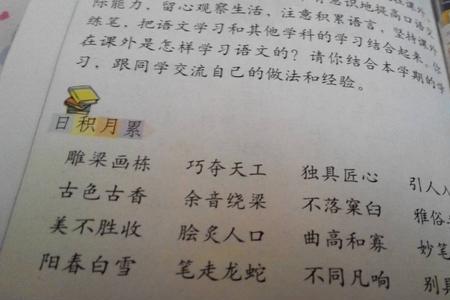 际能力，留心观察生活，注意积累语言，坚持课外
练笔，把语文学习和其他学科的学习结合起来。你
在课外是怎样学习语文的？请你结合本学期的学
习，跟同学交流自己的做法和经验。
日积月累
雕梁画栋 巧夺天工 独具匠心 引人
古色古香 余音绕梁 不落窠臼 雅俗
美不胜收 脍炙人口 曲高和寡 妙笔
阳春白雪 笔走龙蛇 不同凡响 别具